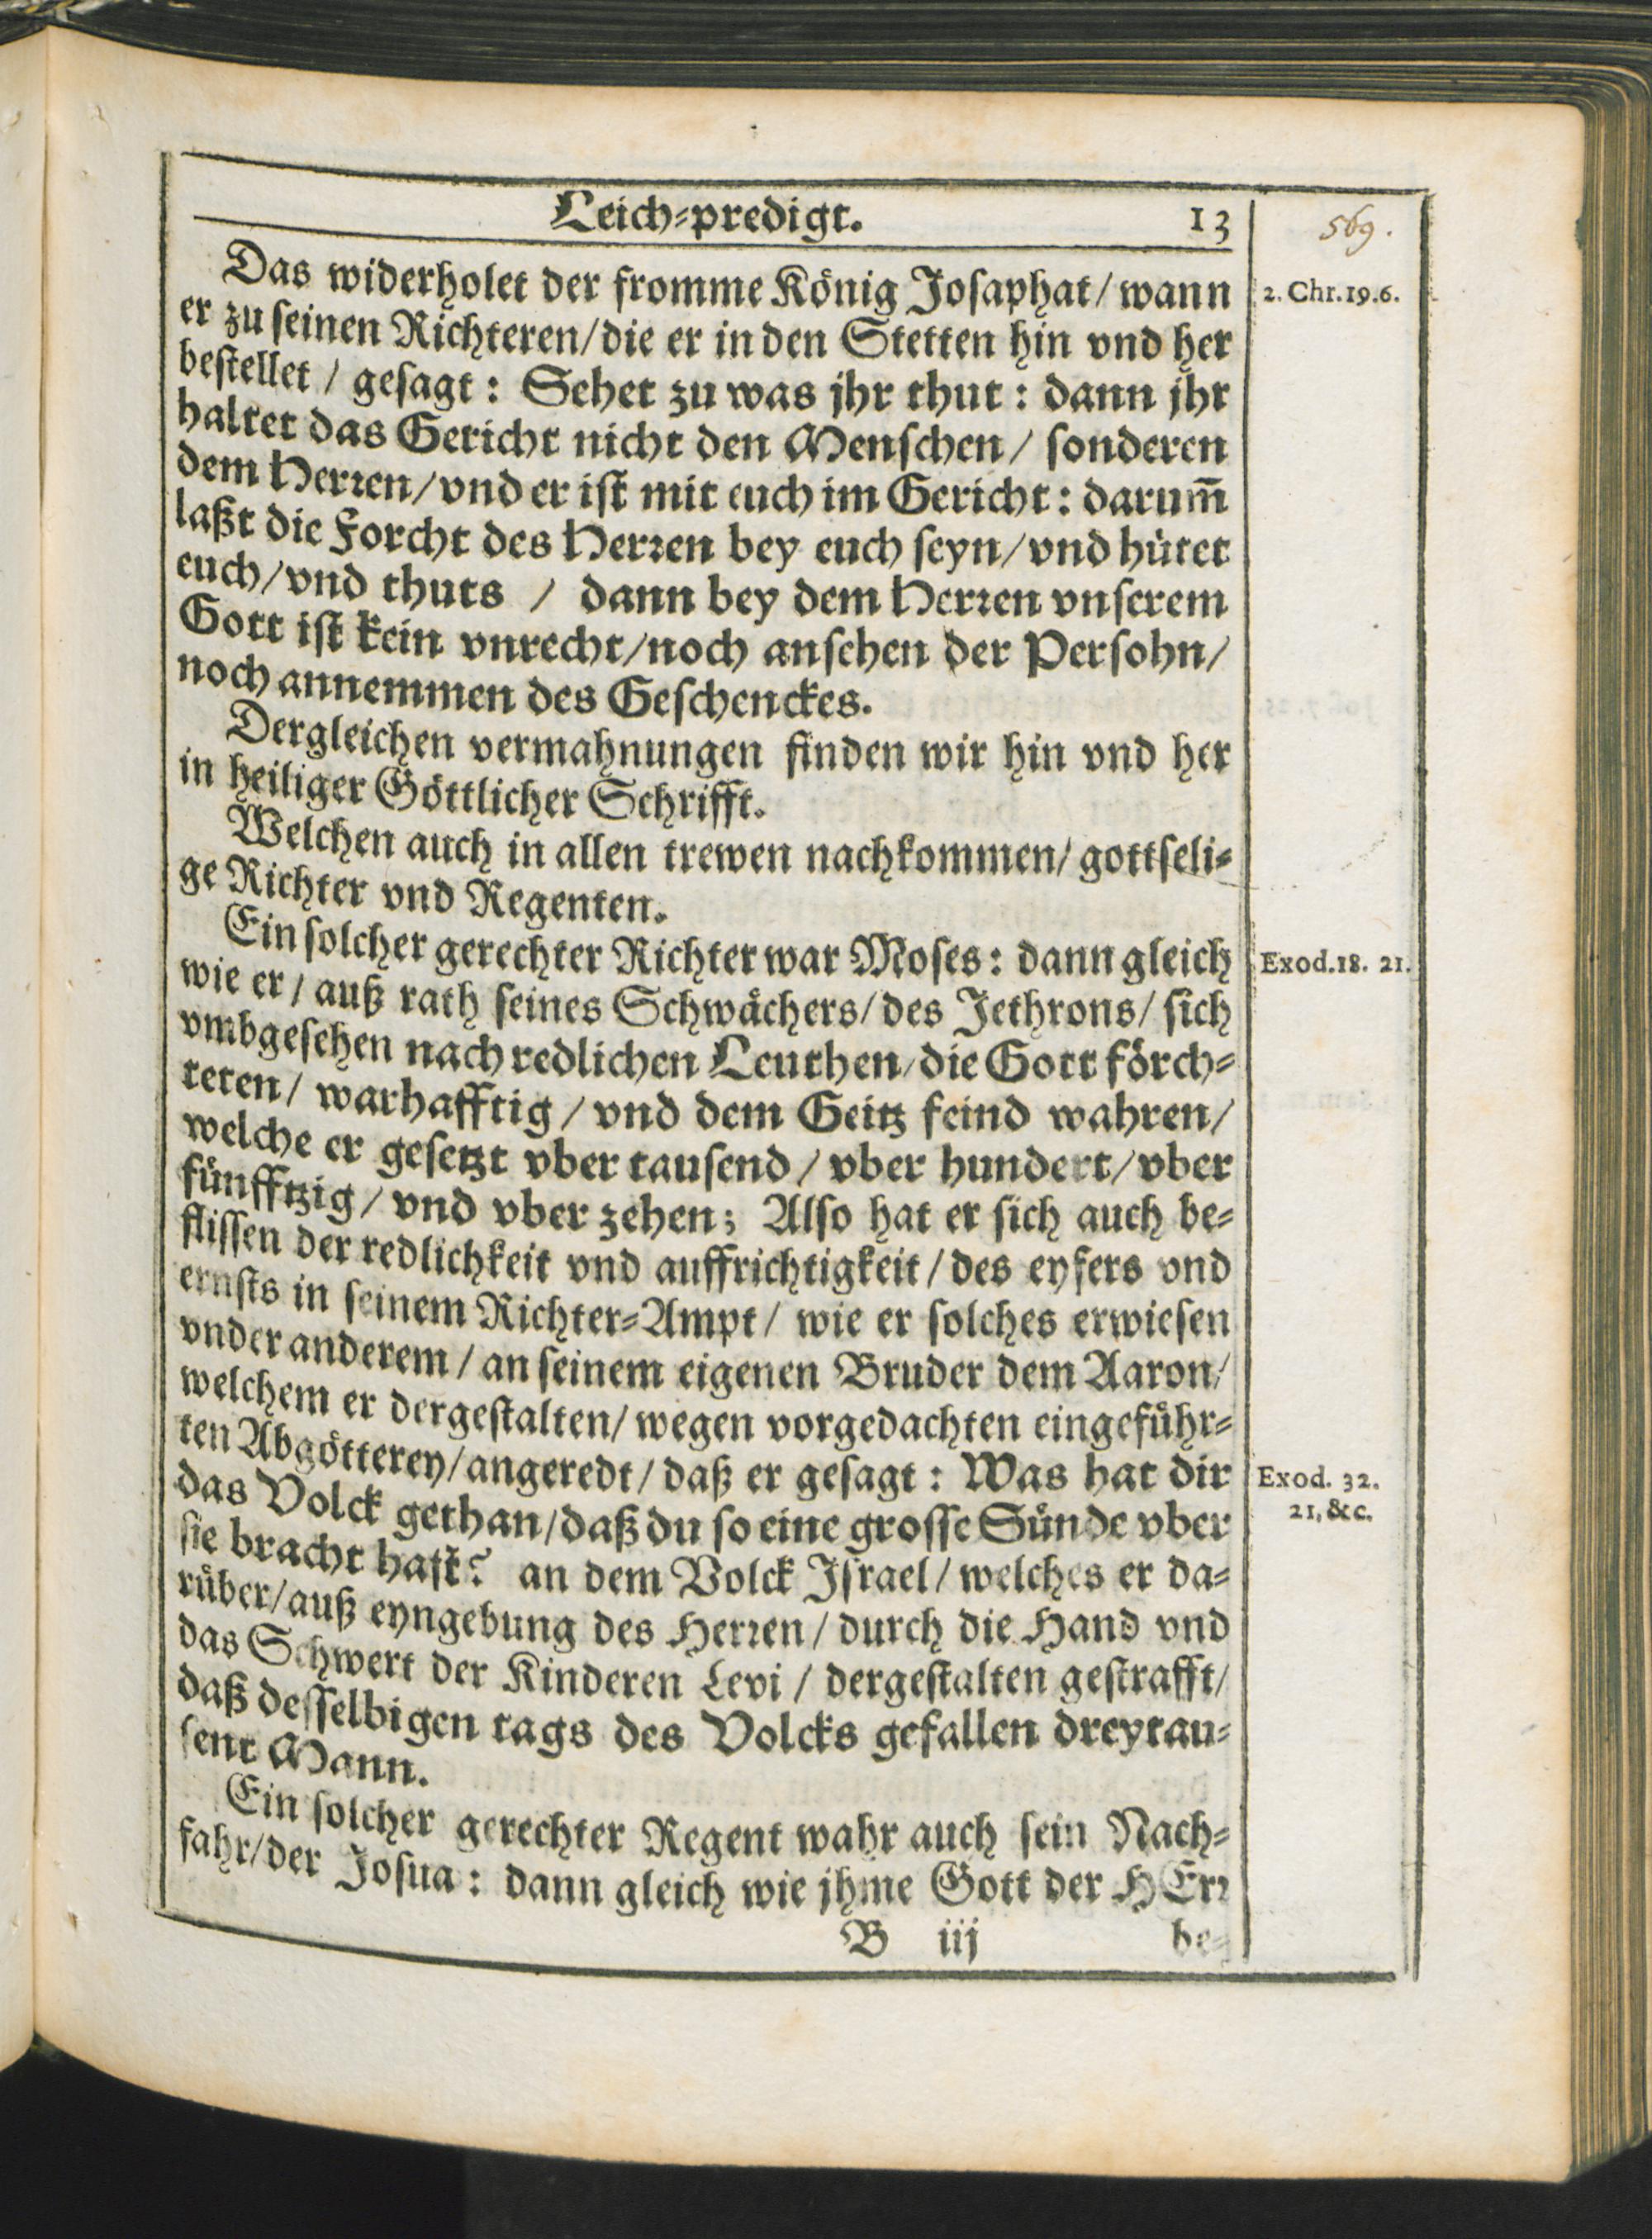 Leich-predigt. 13
569.
Das widerholet der fromme König Josaphat/ wann
2. Chr. 19. 6.
er zu seinen Richteren/ die er in den Stetten hin vnd her
bestellet / gesagt: Sehet zu was jhr thut: dann jhr
haltet das Gericht nicht den Menschen/ sonderen
dem Herren/ vnd er ist mit euch im Gericht: darum̄
laßt die Forcht des Herren bey euch seyn/ vnd hütet
euch/ vnd thuts / dann bey dem Herren vnserem
Gott ist kein vnrecht/ noch ansehen der Persohn/
noch annemmen des Geschenckes.
Dergleichen vermahnungen finden wir hin vnd her
in heiliger Göttlicher Schrifft.
Welchen auch in allen trewen nachkommen/ gottseli-
ge Richter vnd Regenten.
Ein solcher gerechter Richter war Moses: dann gleich
Exod. 18. 21.
wie er / auß rath seines Schwächers/ des Jethrons/ sich
vmbgesehen nach redlichen Leuthen/ die Gott förch-
teten/ warhafftig / vnd dem Geitz feind wahren/
welche er gesetzt vber tausend / vber hundert/ vber
fünfftzig / vnd vber zehen; Also hat er sich auch be-
flissen der redlichkeit vnd auffrichtigkeit / des eyfers vnd
ernsts in seinem Richter-Ampt / wie er solches erwiesen
vnder anderem / an seinem eigenen Bruder dem Aaron/
welchem er dergestalten/ wegen vorgedachten eingeführ-
ten Abgötterey/ angeredt / daß er gesagt: Was hat dir
Exod. 32.
21, &c.
das Volck gethan/ daß du so eine grosse Sünde vber
sie bracht hast? an dem Volck Israel / welches er da-
rüber/ auß eyngebung des Herren / durch die Hand vnd
das Schwert der Kinderen Levi / dergestalten gestrafft/
daß desselbigen tags des Volcks gefallen dreytau-
sent Mann.
Ein solcher gerechter Regent wahr auch sein Nach-
fahr/ der Josua: dann gleich wie jhme Gott der HErr
B iij be-